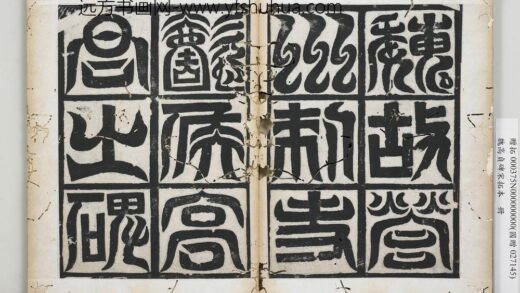 远方书画网 www.yfshuhua.com
魏故營
州刺史
懿侯高
君之碑
贈拓 000375N000000000(國贈 027145)
魏高貞碑宋拓本 冊